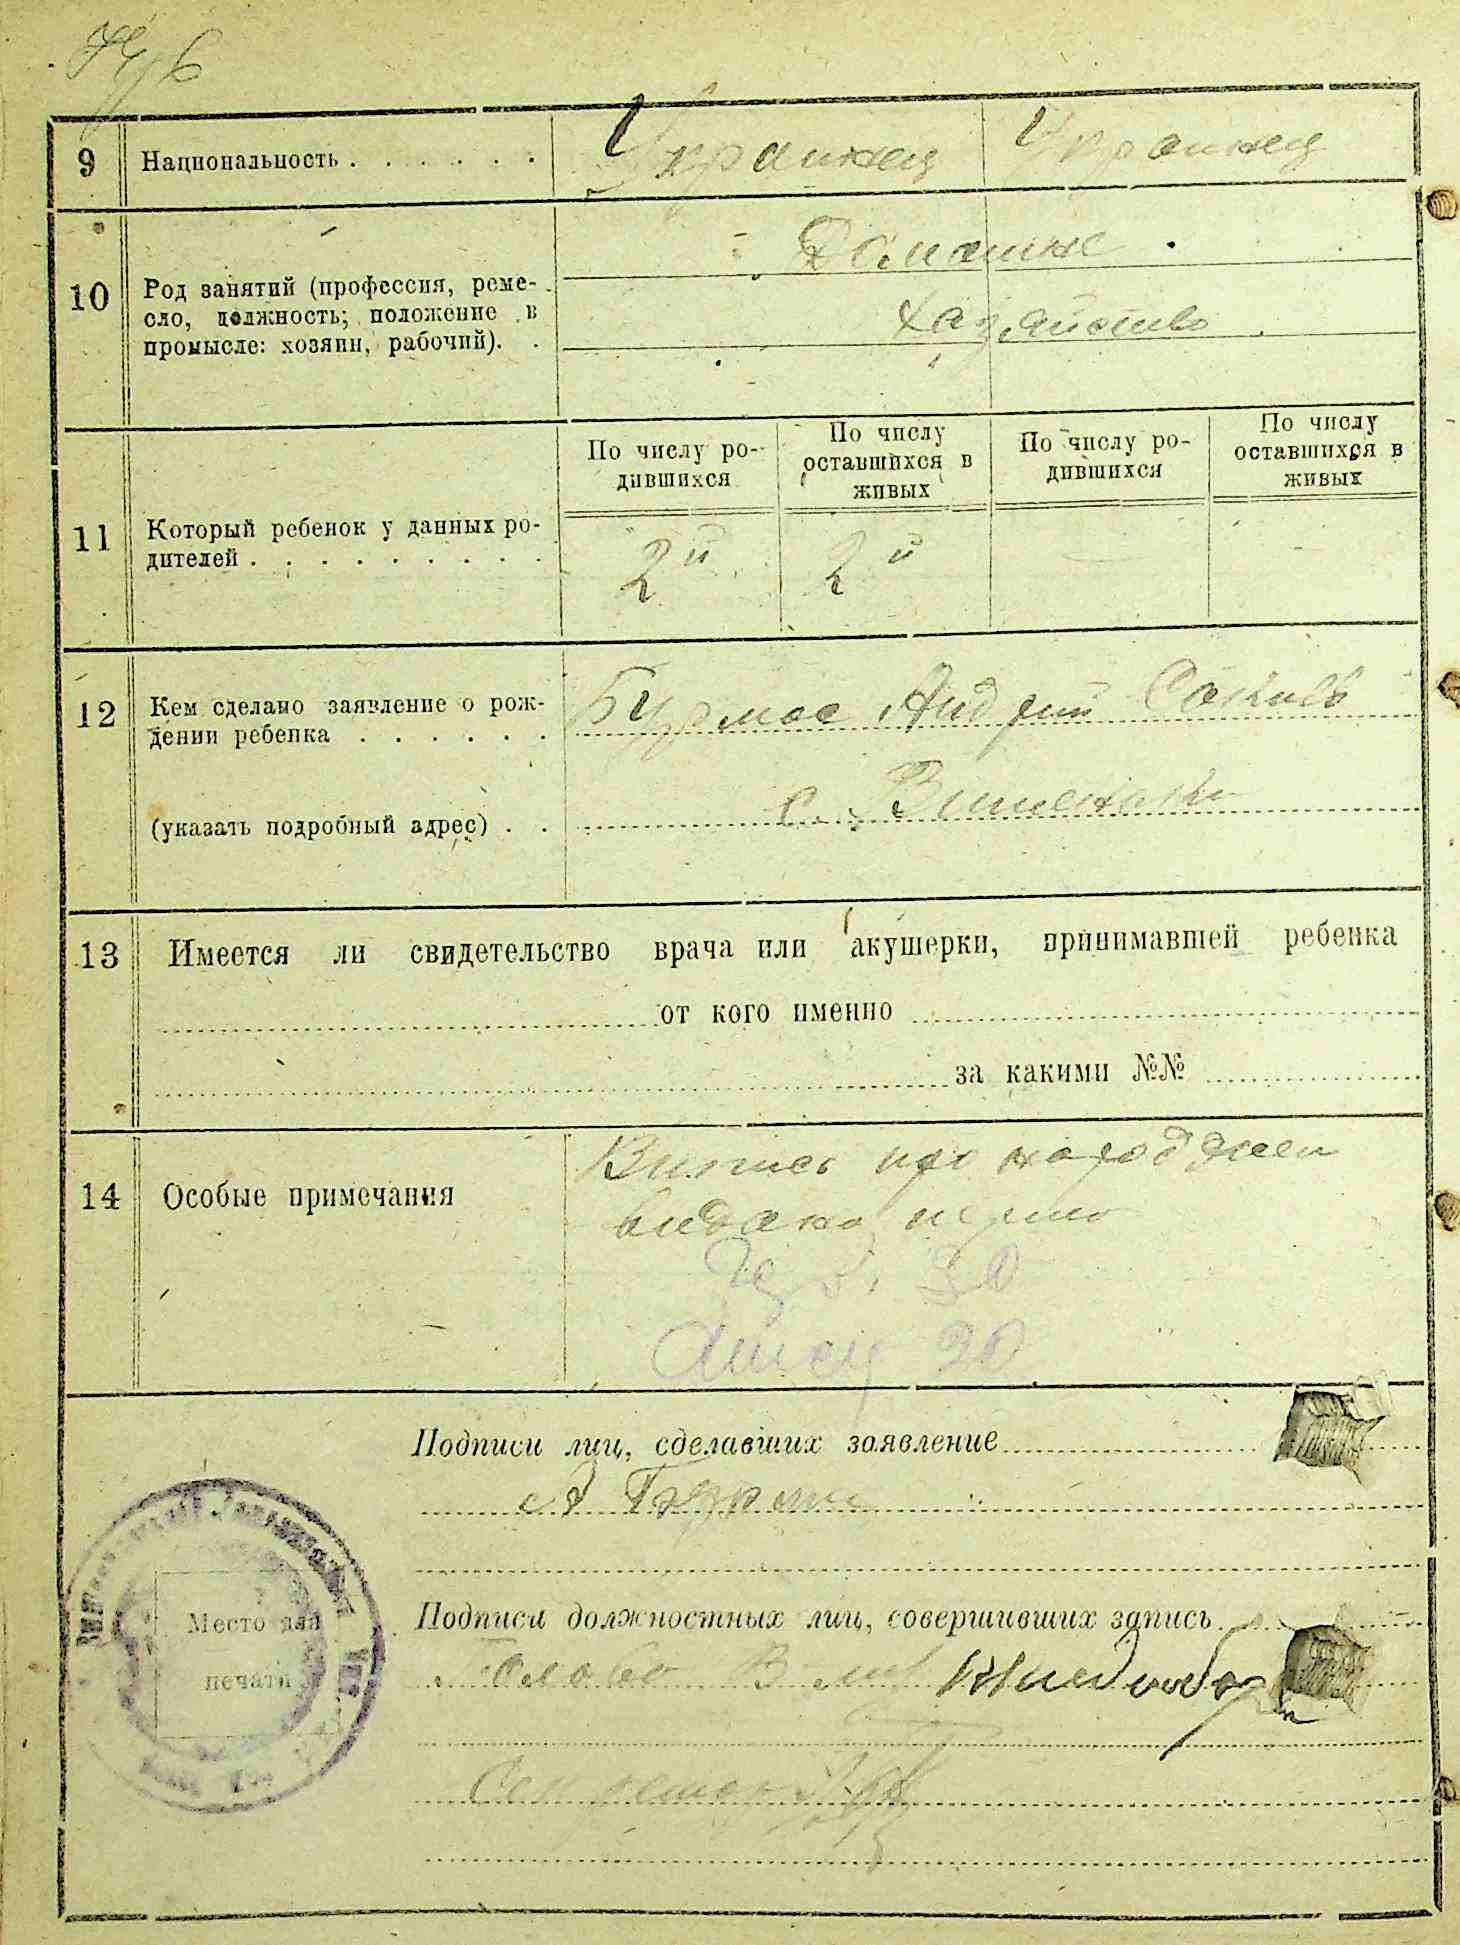 9
Национальность . . . . . .
Украинец Украинец
10
Род занятий (профессия, реме-
сло, должность; положение в
промысле: хозяин, рабочий). .
Домашнє
хазяйство
11
Который ребенок у данных ро-
дителей . . . . . . . . .
По числу ро-
дившихся
По числу
оставшихся в
живых
По числу ро-
дившихся
По числу
оставшихся в
живых
2й 2й
12
Кем сделано заявление о рож-
дении ребенка . . . . . .
Бурмас Андрій
(указать подробный адрес) . .
с. Вишеньки
13
Имеется ли свидетельство врача или акушерки, принимавшей ребенка
от кого именно
за какими №№
14
Особые примечания
Випись про народження
видано перше
20
Подписи лиц, сделавших заявление
Бурмас
Подписи должностных лиц, совершивших запись
Голова
Секретарь
Место для
печати